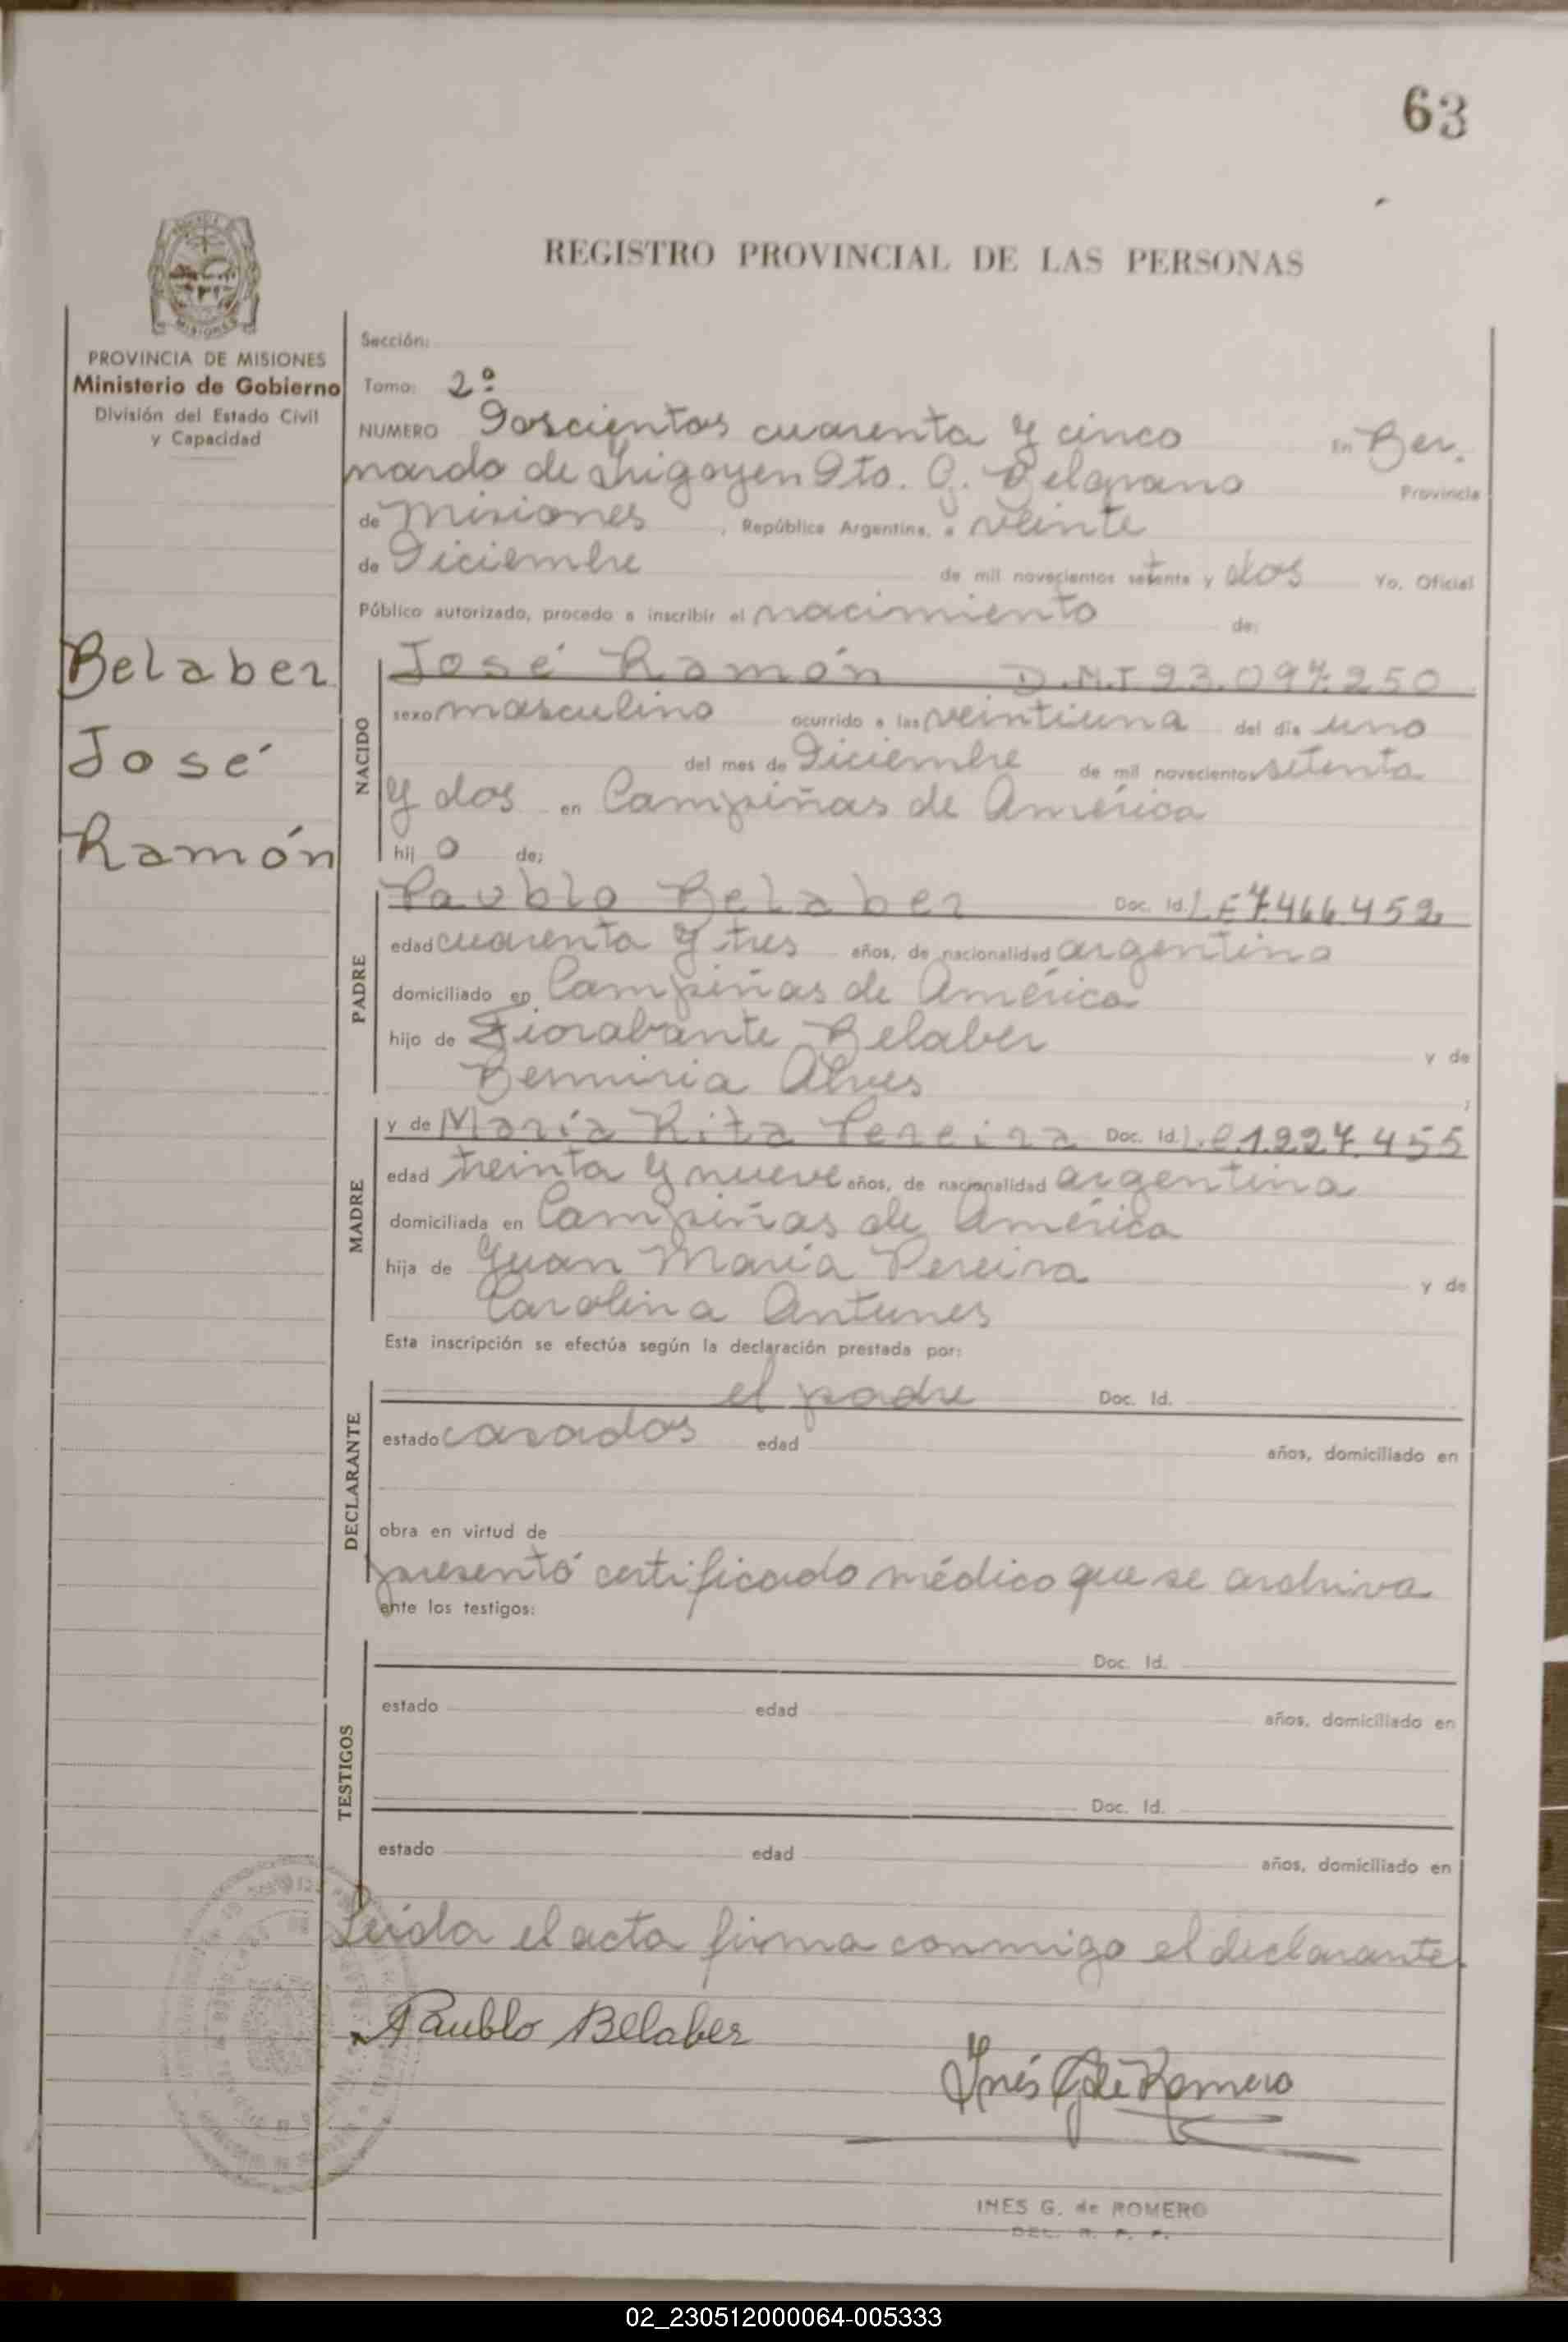 63
REGISTRO PROVINCIAL DE LAS PERSONAS
MISIONES
PROVINCIA DE MISIONES
Ministerio de Gobierno
División del Estado Civil
y Capacidad
Belaber
José
Ramón
Sección:
Tomo: 2º
NUMERO Doscientos cuarenta y cinco en Ber.
nardo de Irigoyen Dto. G. Belgrano Provincia
de Misiones, República Argentina, a veinte
de Diciembre de mil novecientos setenta y dos Yo, Oficial
Público autorizado, procedo a inscribir el nacimiento de:
NACIDO
José Ramón D.N.I 23.097.250
sexo masculino ocurrido a las veintiuna del día uno
del mes de Diciembre de mil novecientos setenta
y dos en Campiñas de América
hij o de:
PADRE
Paublo Belaber Doc. Id. L.E 7.466.452
edad cuarenta y tres años, de nacionalidad argentina
domiciliado en Campiñas de América
hijo de Fiorabante Belaber y de
Alves ;
MADRE
y de María Rita Pereira Doc. Id. L.C 1.227.455
edad treinta y nueve años, de nacionalidad argentina
domiciliada en Campiñas de América
hija de Juan María Pereira y de
Carolina Antunes
Esta inscripción se efectúa según la declaración prestada por:
DECLARANTE
el padre Doc. Id.
estado casados edad años, domiciliado en
obra en virtud de
presentó certificado médico que se archiva
ante los testigos:
TESTIGOS
Doc. Id.
estado edad años, domiciliado en
Doc. Id.
estado edad años, domiciliado en
Leída el acta firma conmigo el declarante
Paublo Belaber
Inés G de Romero
INES G. de ROMERO
DEL. R. P. P.
02_230512000064-005333